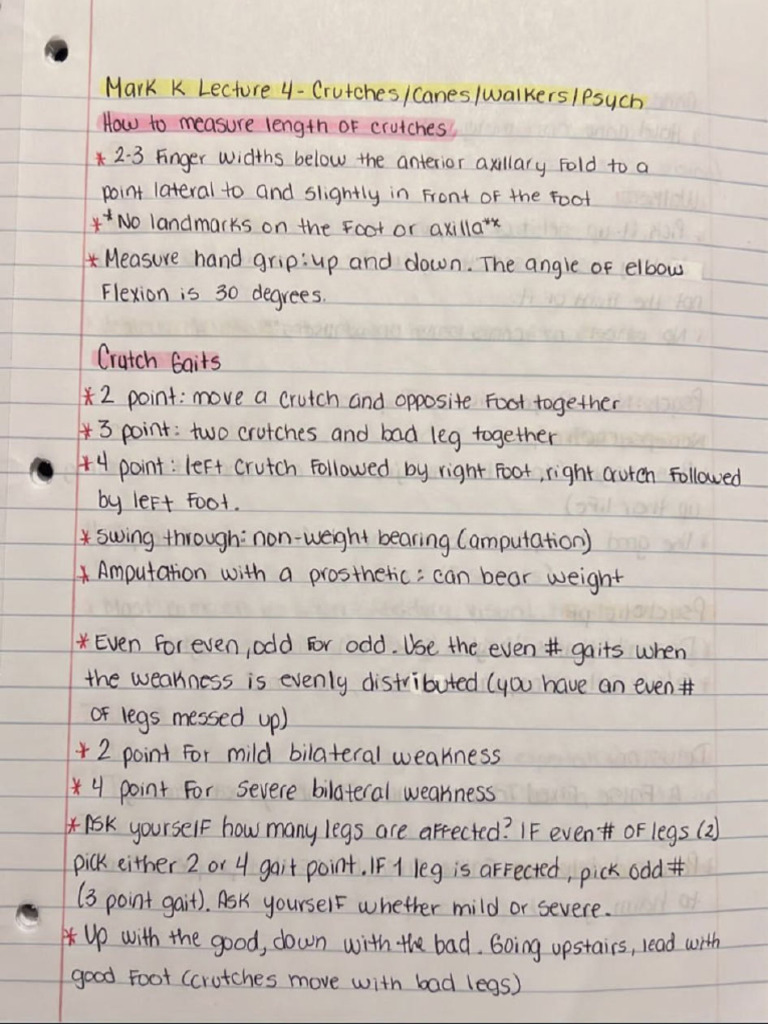 Mark K Lecture 4 - Crutches/Canes/Walkers/Psych
How to measure length of crutches
* 2-3 Finger widths below the anterior axillary fold to a
point lateral to and slightly in front of the foot
** No landmarks on the foot or axilla**
* Measure hand grip: up and down. The angle of elbow
flexion is 30 degrees.
Crutch Gaits
* 2 point: move a crutch and opposite foot together
* 3 point: two crutches and bad leg together
* 4 point: left crutch followed by right foot, right crutch followed
by left foot.
* swing through: non-weight bearing (amputation)
* Amputation with a prosthetic: can bear weight
* Even for even, odd for odd. Use the even # gaits when
the weakness is evenly distributed (you have an even #
of legs messed up)
* 2 point for mild bilateral weakness
* 4 point for severe bilateral weakness
* Ask yourself how many legs are affected? If even # of legs (2)
pick either 2 or 4 gait point. If 1 leg is affected, pick odd #
(3 point gait). Ask yourself whether mild or severe.
* Up with the good, down with the bad. Going upstairs, lead with
good foot (crutches move with bad legs)